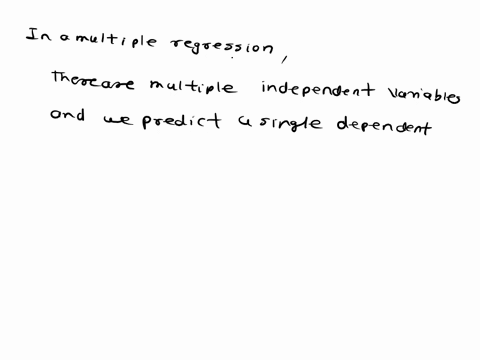 In a multiple regression,
there are multiple independent variables
and we predict a single dependent